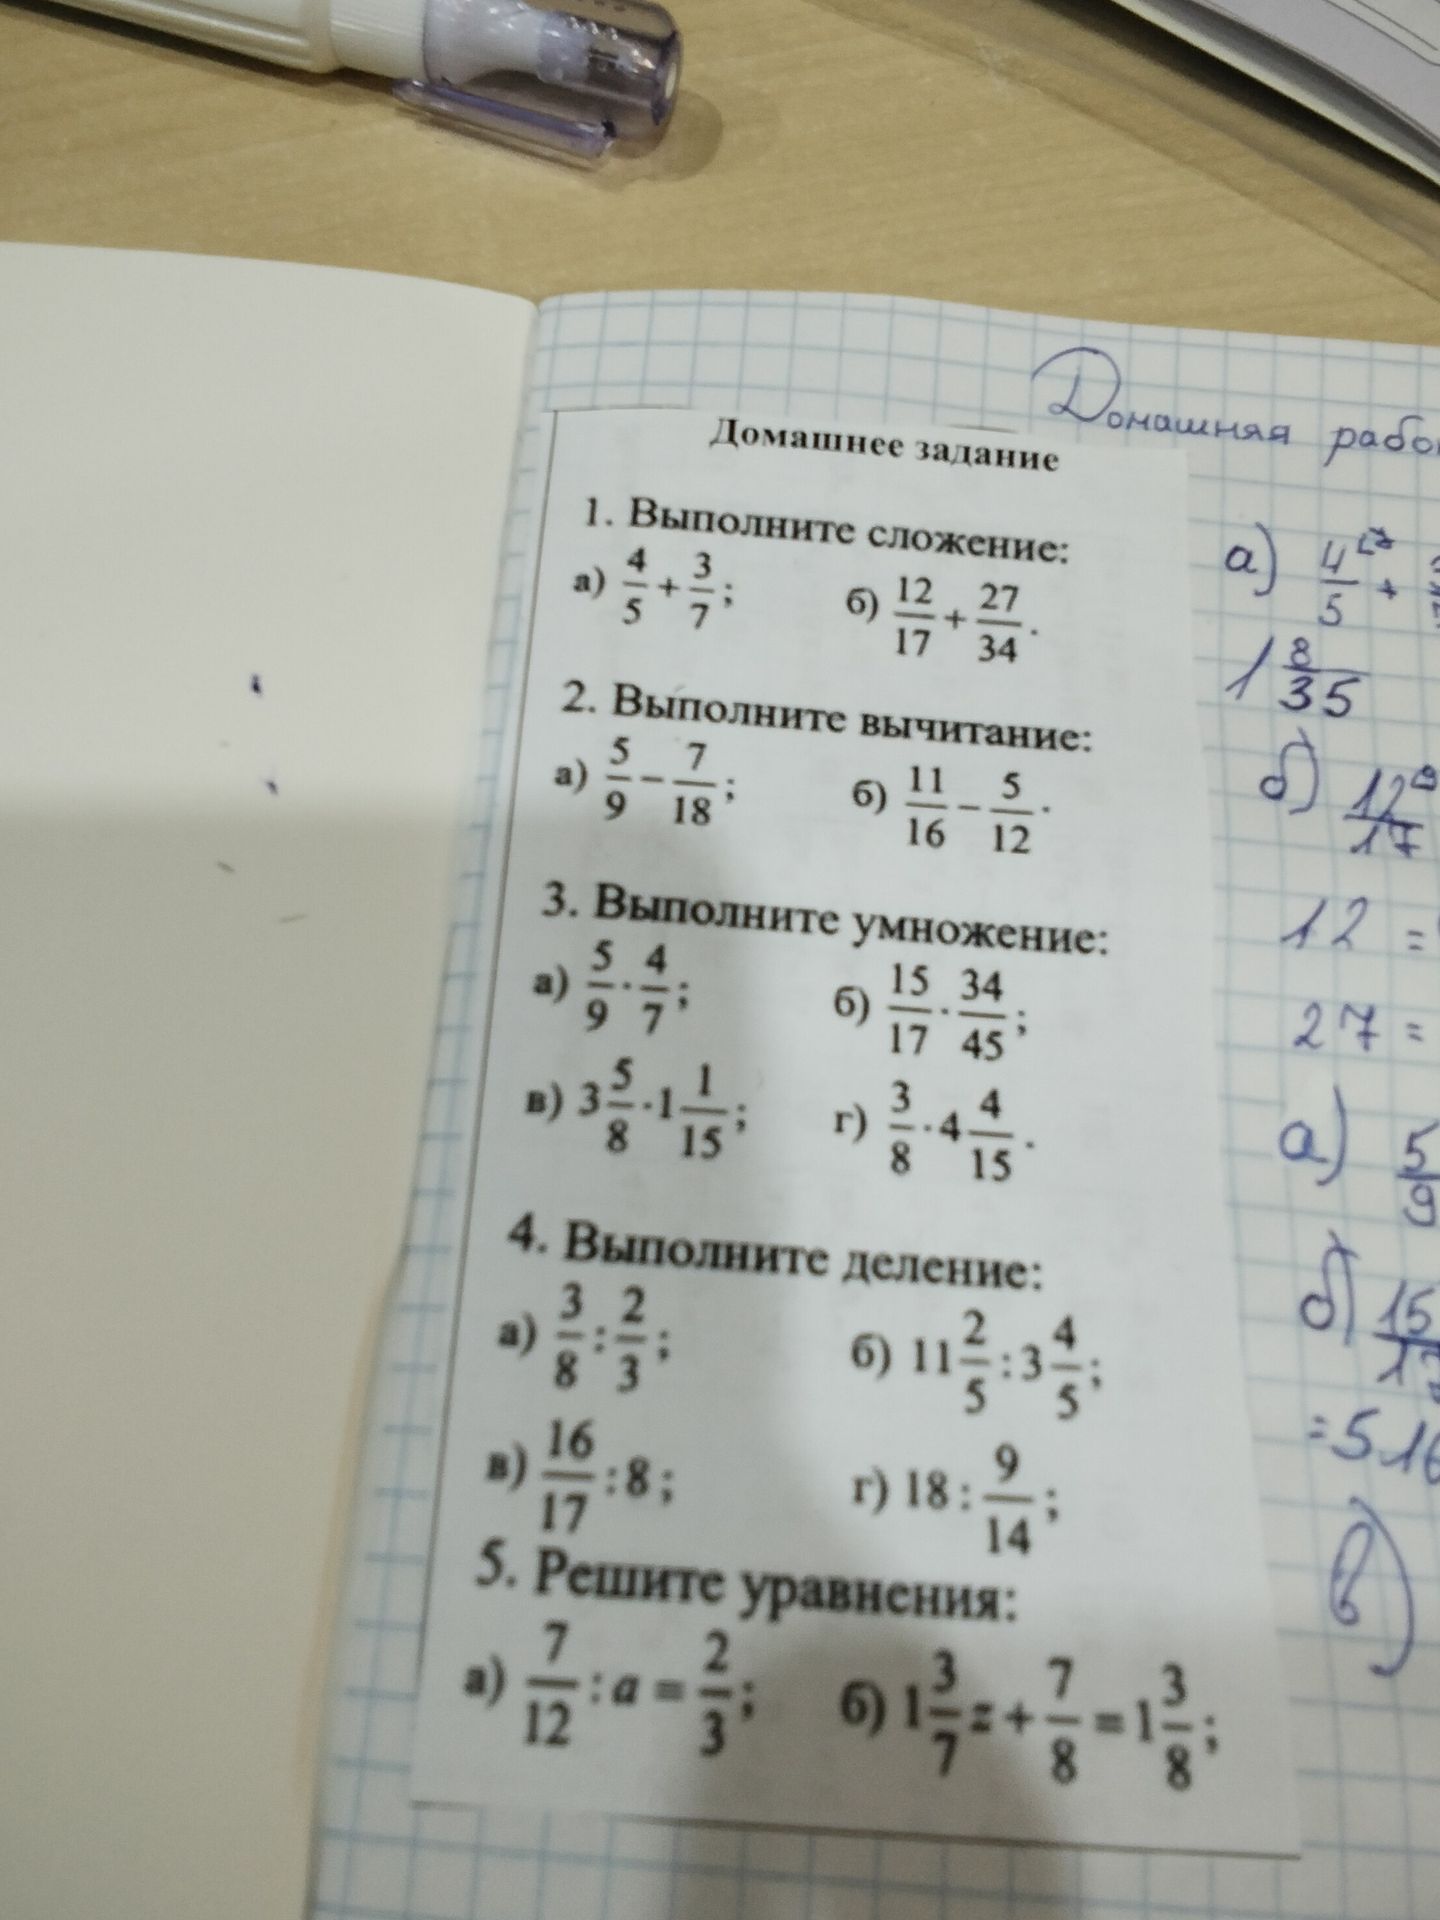 Домашняя
Домашнее задание
1. Выполните сложение:
а) 4/5 + 3/7; б) 12/17 + 27/34.
2. Выполните вычитание:
а) 5/9 − 7/18; б) 11/16 − 5/12.
3. Выполните умножение:
а) 5/9 · 4/7; б) 15/17 · 34/45;
в) 3 5/8 · 1 1/15; г) 3/8 · 4 4/15.
4. Выполните деление:
а) 3/8 : 2/3; б) 11 2/5 : 3 4/5;
в) 16/17 : 8; г) 18 : 9/14;
5. Решите уравнения:
а) 7/12 : a = 2/3; б) 1 3/7 z + 7/8 = 1 3/8;
а) 4/5 +
1 8/35
б) 12/17
12 =
27 =
а) 5/9
б) 15
в)